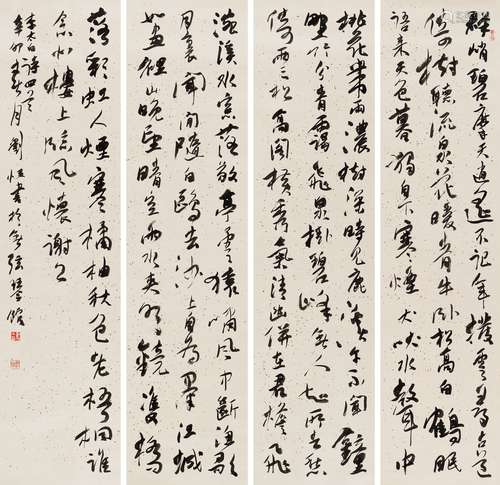 群峭碧摩天逍遥不記年撥雲尋古道
倚樹聽流泉花暖青牛卧松高白鶴眠
語來江色暮獨自下寒煙犬吠水聲中
桃花帶雨濃樹深時見鹿溪午不聞鐘
野竹分青靄飛泉掛碧峰無人知所去愁
倚兩三松高閣横秀氣清幽併在君簷飛
宛溪水窗落敬亭雲猿嘯風中斷漁歌
月裏聞閒隨白鷗去沙上自為羣江城
如畫裡山晚望晴空兩水夾明鏡雙橋
落彩虹人煙寒橘柚秋色老梧桐誰
念北樓上臨風懷謝公
李太白詩四首
辛卯春月劉恒書於